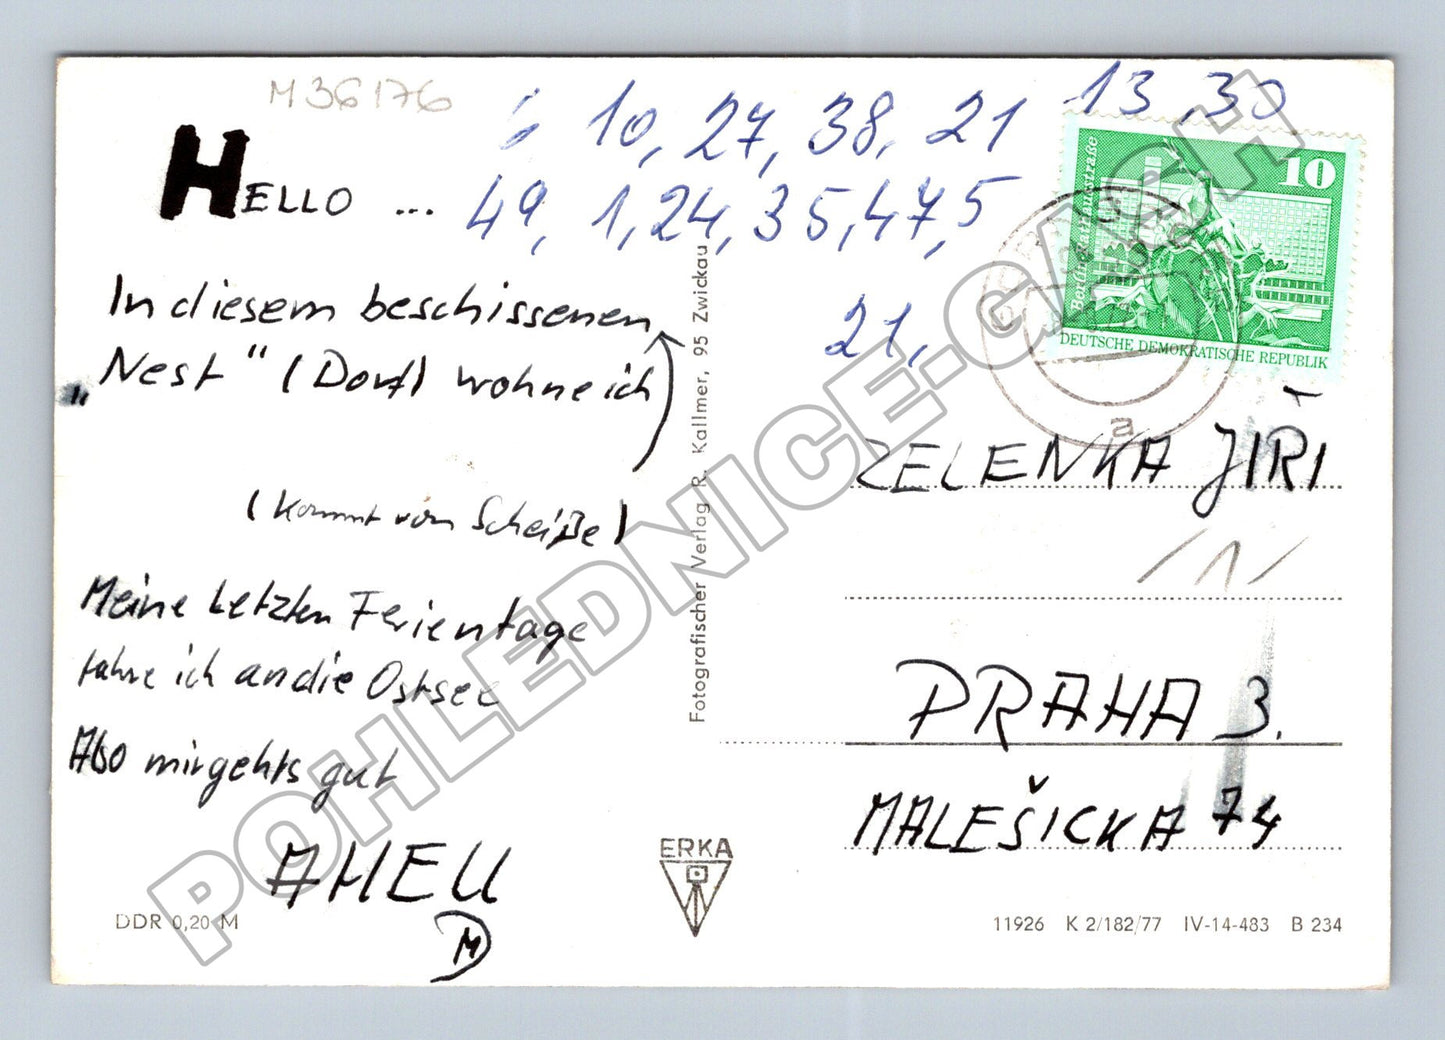 M36176
6 10, 27, 38, 21 13, 30
49, 1, 24, 35, 47, 5
21,
HELLO ...
In diesem beschissenen
„Nest“ (Dorf) wohne ich
(kommt von Scheiße)
Meine Letzten Ferientage
fahre ich an die Ostsee
Also mir gehts gut
AHEU
M
DDR 0,20 M
Fotografischer Verlag R. Kallmer, 95 Zwickau
ERKA
10
Berlin, Rathausstraße
DEUTSCHE DEMOKRATISCHE REPUBLIK
a
ZELENKA JIŘI
PRAHA 3.
MALEŠICKA 74
11926 K 2/182/77 IV-14-483 B 234
POHLEDNICE-GASH